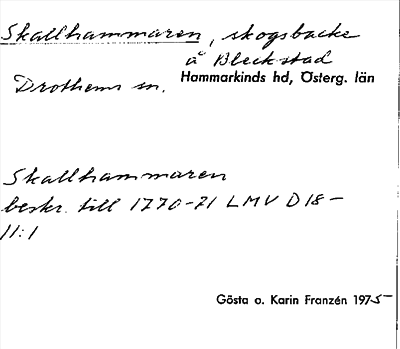 Skallhammaren, skogsbacke
å Bleckstad
Drothems sn. Hammarkinds hd, Österg. län
Skallhammaren
beskr. till 1770-71 LMV D18-
11:1
Gösta o. Karin Franzén 1975